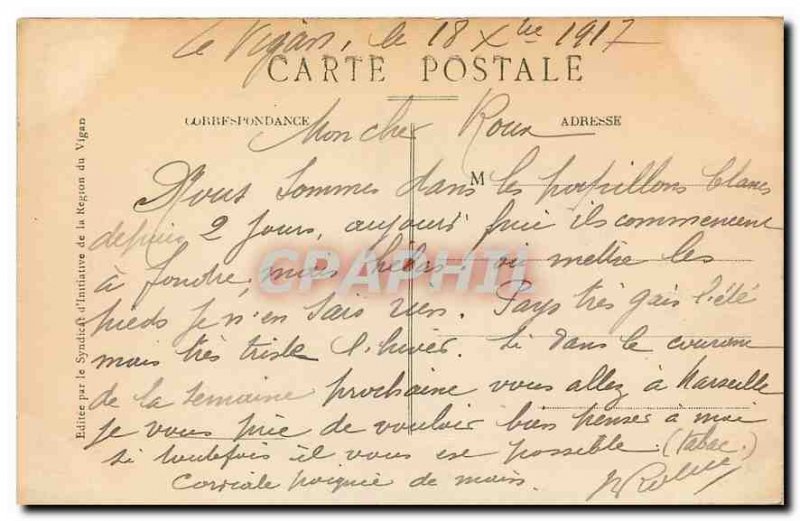 Le Vigan, le 18 Xbre 1917
CARTE POSTALE
CORRESPONDANCE
ADRESSE
Mon cher Roux
M
Nous sommes dans les papillons blancs
depuis 2 jours, aujourd'hui ils commencent
à fondre, mais hélas où mettre les
pieds je n'en sais rien. Pays très gais l'été
mais très triste l'hiver. Si dans le courant
de la semaine prochaine vous allez à Marseille
je vous prie de vouloir bien penser à moi
si toutefois il vous est possible. (tabac.)
Cordiale poignée de mains.
Editée par le Syndicat d'Initiative de la Région du Vigan
CPAPHIL